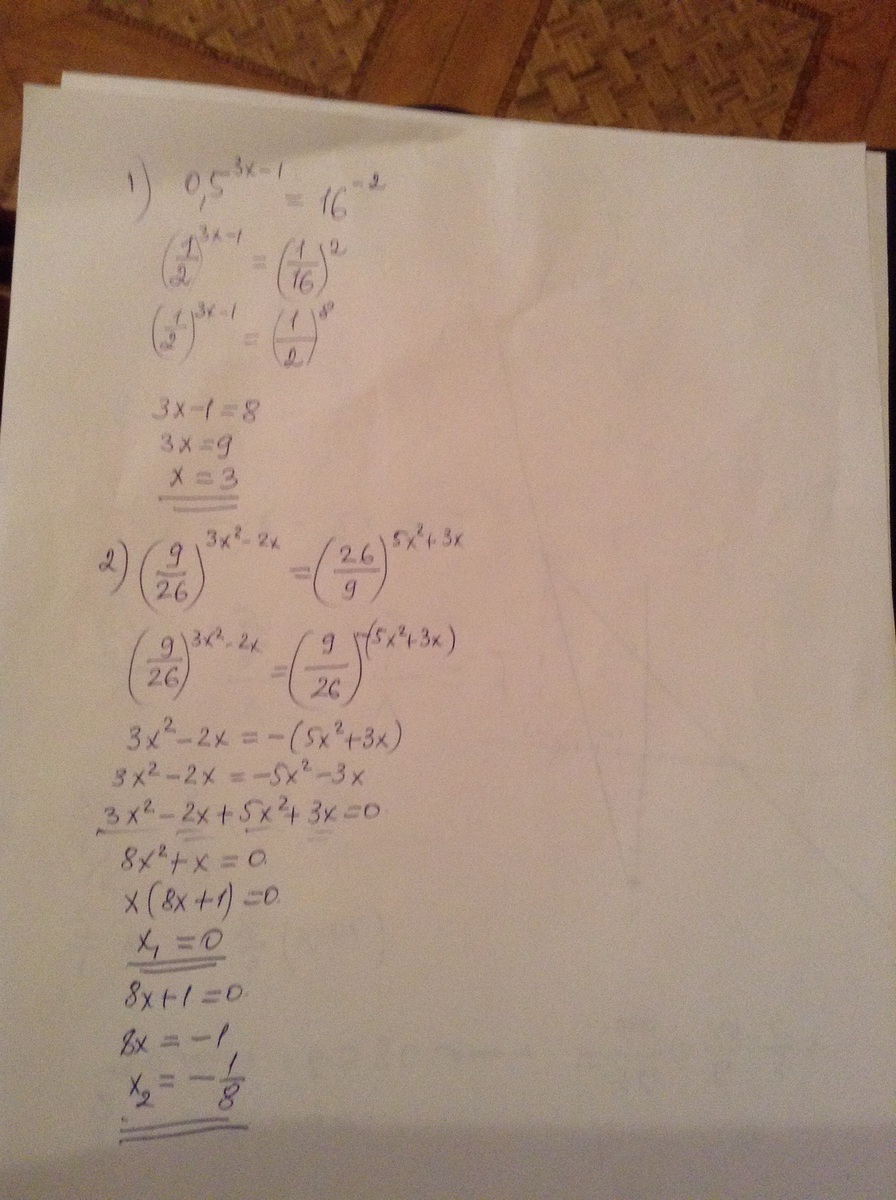 1) 0,5^(3x-1) = 16^(-2)
(1/2)^(3x-1) = (1/16)^2
(1/2)^(3x-1) = (1/2)^8
3x-1=8
3x=9
x=3
2) (9/26)^(3x²-2x) = (26/9)^(5x²+3x)
(9/26)^(3x²-2x) = (9/26)^(-(5x²+3x))
3x²-2x=-(5x²+3x)
3x²-2x=-5x²-3x
3x²-2x+5x²+3x=0
8x²+x=0
x(8x+1)=0
x₁=0
8x+1=0
8x=-1
x₂=-1/8